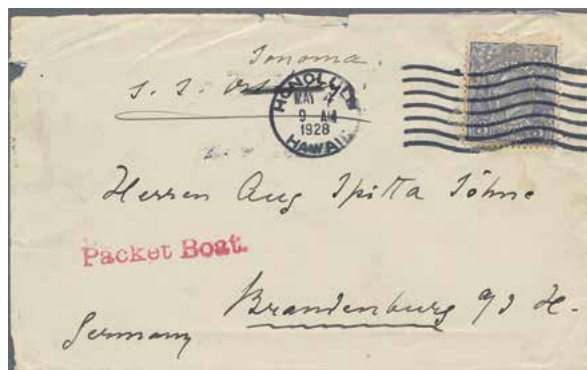 Sonoma.
S. S.
HONOLULU
MAY 4
9 AM
1928
HAWAII
Herren Aug Spitta Söhne
Packet Boat.
Brandenburg a/d H.
Germany